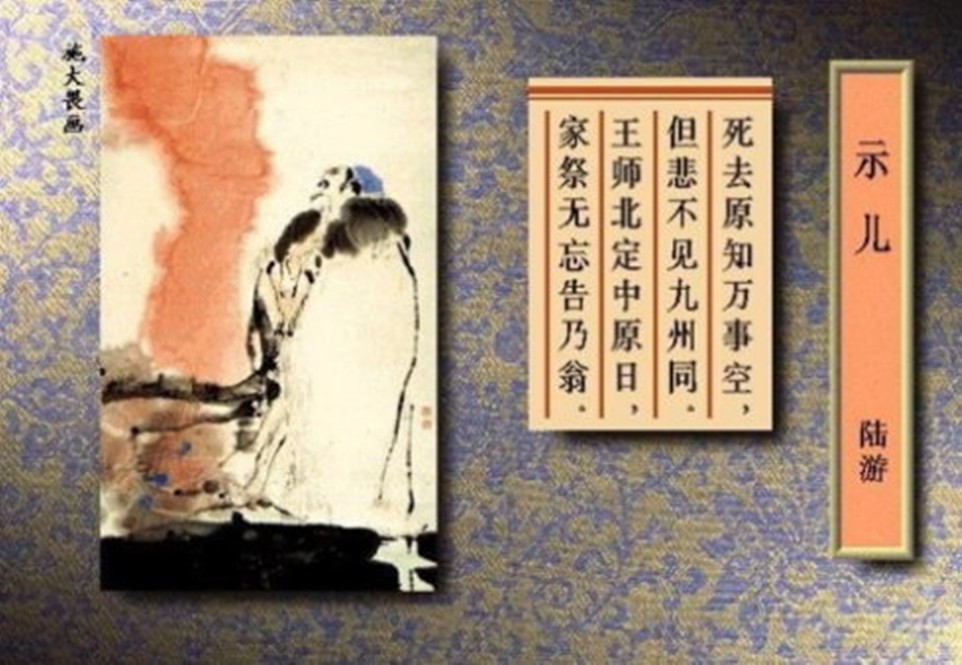 示儿
陆游
死去原知万事空，
但悲不见九州同。
王师北定中原日，
家祭无忘告乃翁。
施大畏画